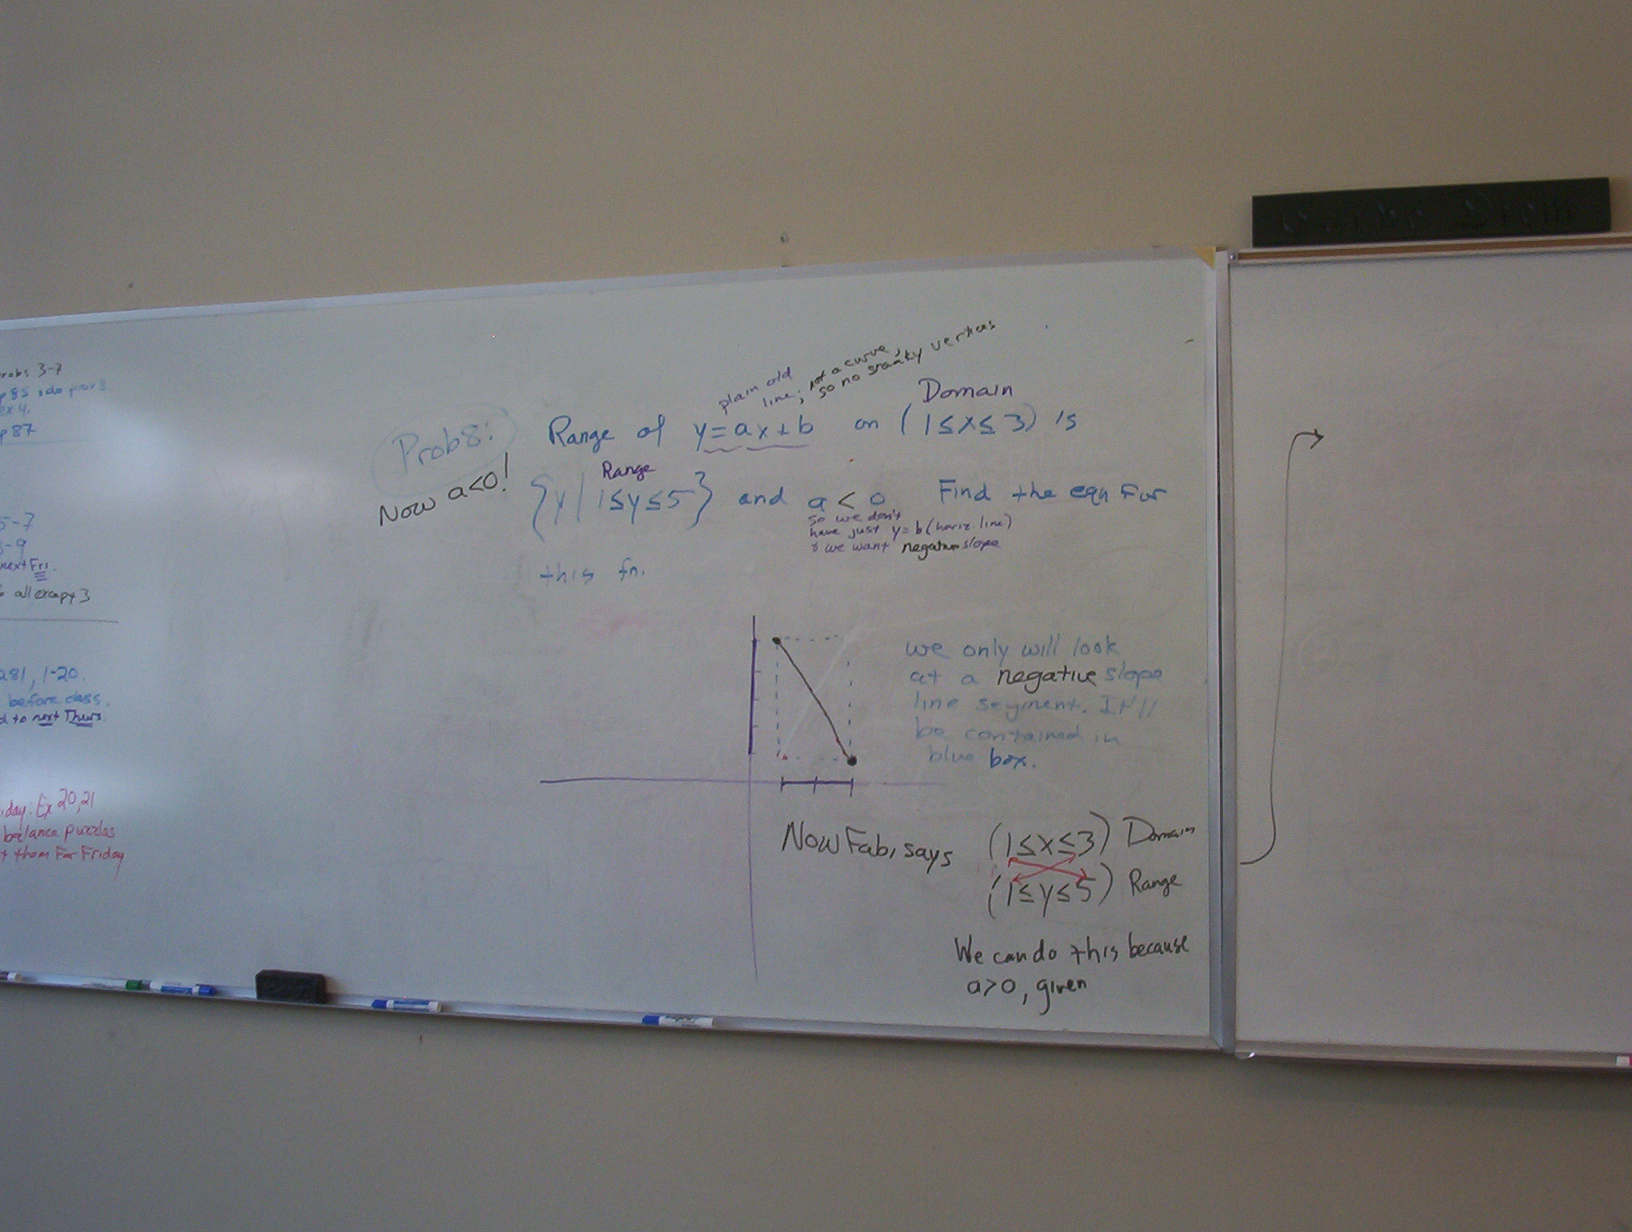 probs 3-7
p85, do par 3.
ex 4.
p87
5-7
next Fri.
all except 3
281, 1-20.
before class.
d to next Thurs.
iday: Ex 20,21
balance puzzles
t them For Friday
Prob 8:
Now a<0!
plain old
line; not a curve,
so no sneaky vertices
Domain
Range of y=ax+b on (1≤x≤3) is
Range
{y | 1≤y≤5} and a < 0 Find the eqn for
so we don't
have just y=b (horiz line)
& we want negative slope
this fn.
we only will look
at a negative slope
line segment. It'll
be contained in
blue box.
Now Fab, says (1≤x≤3) Domain
(1≤y≤5) Range
We can do this because
a>0, given